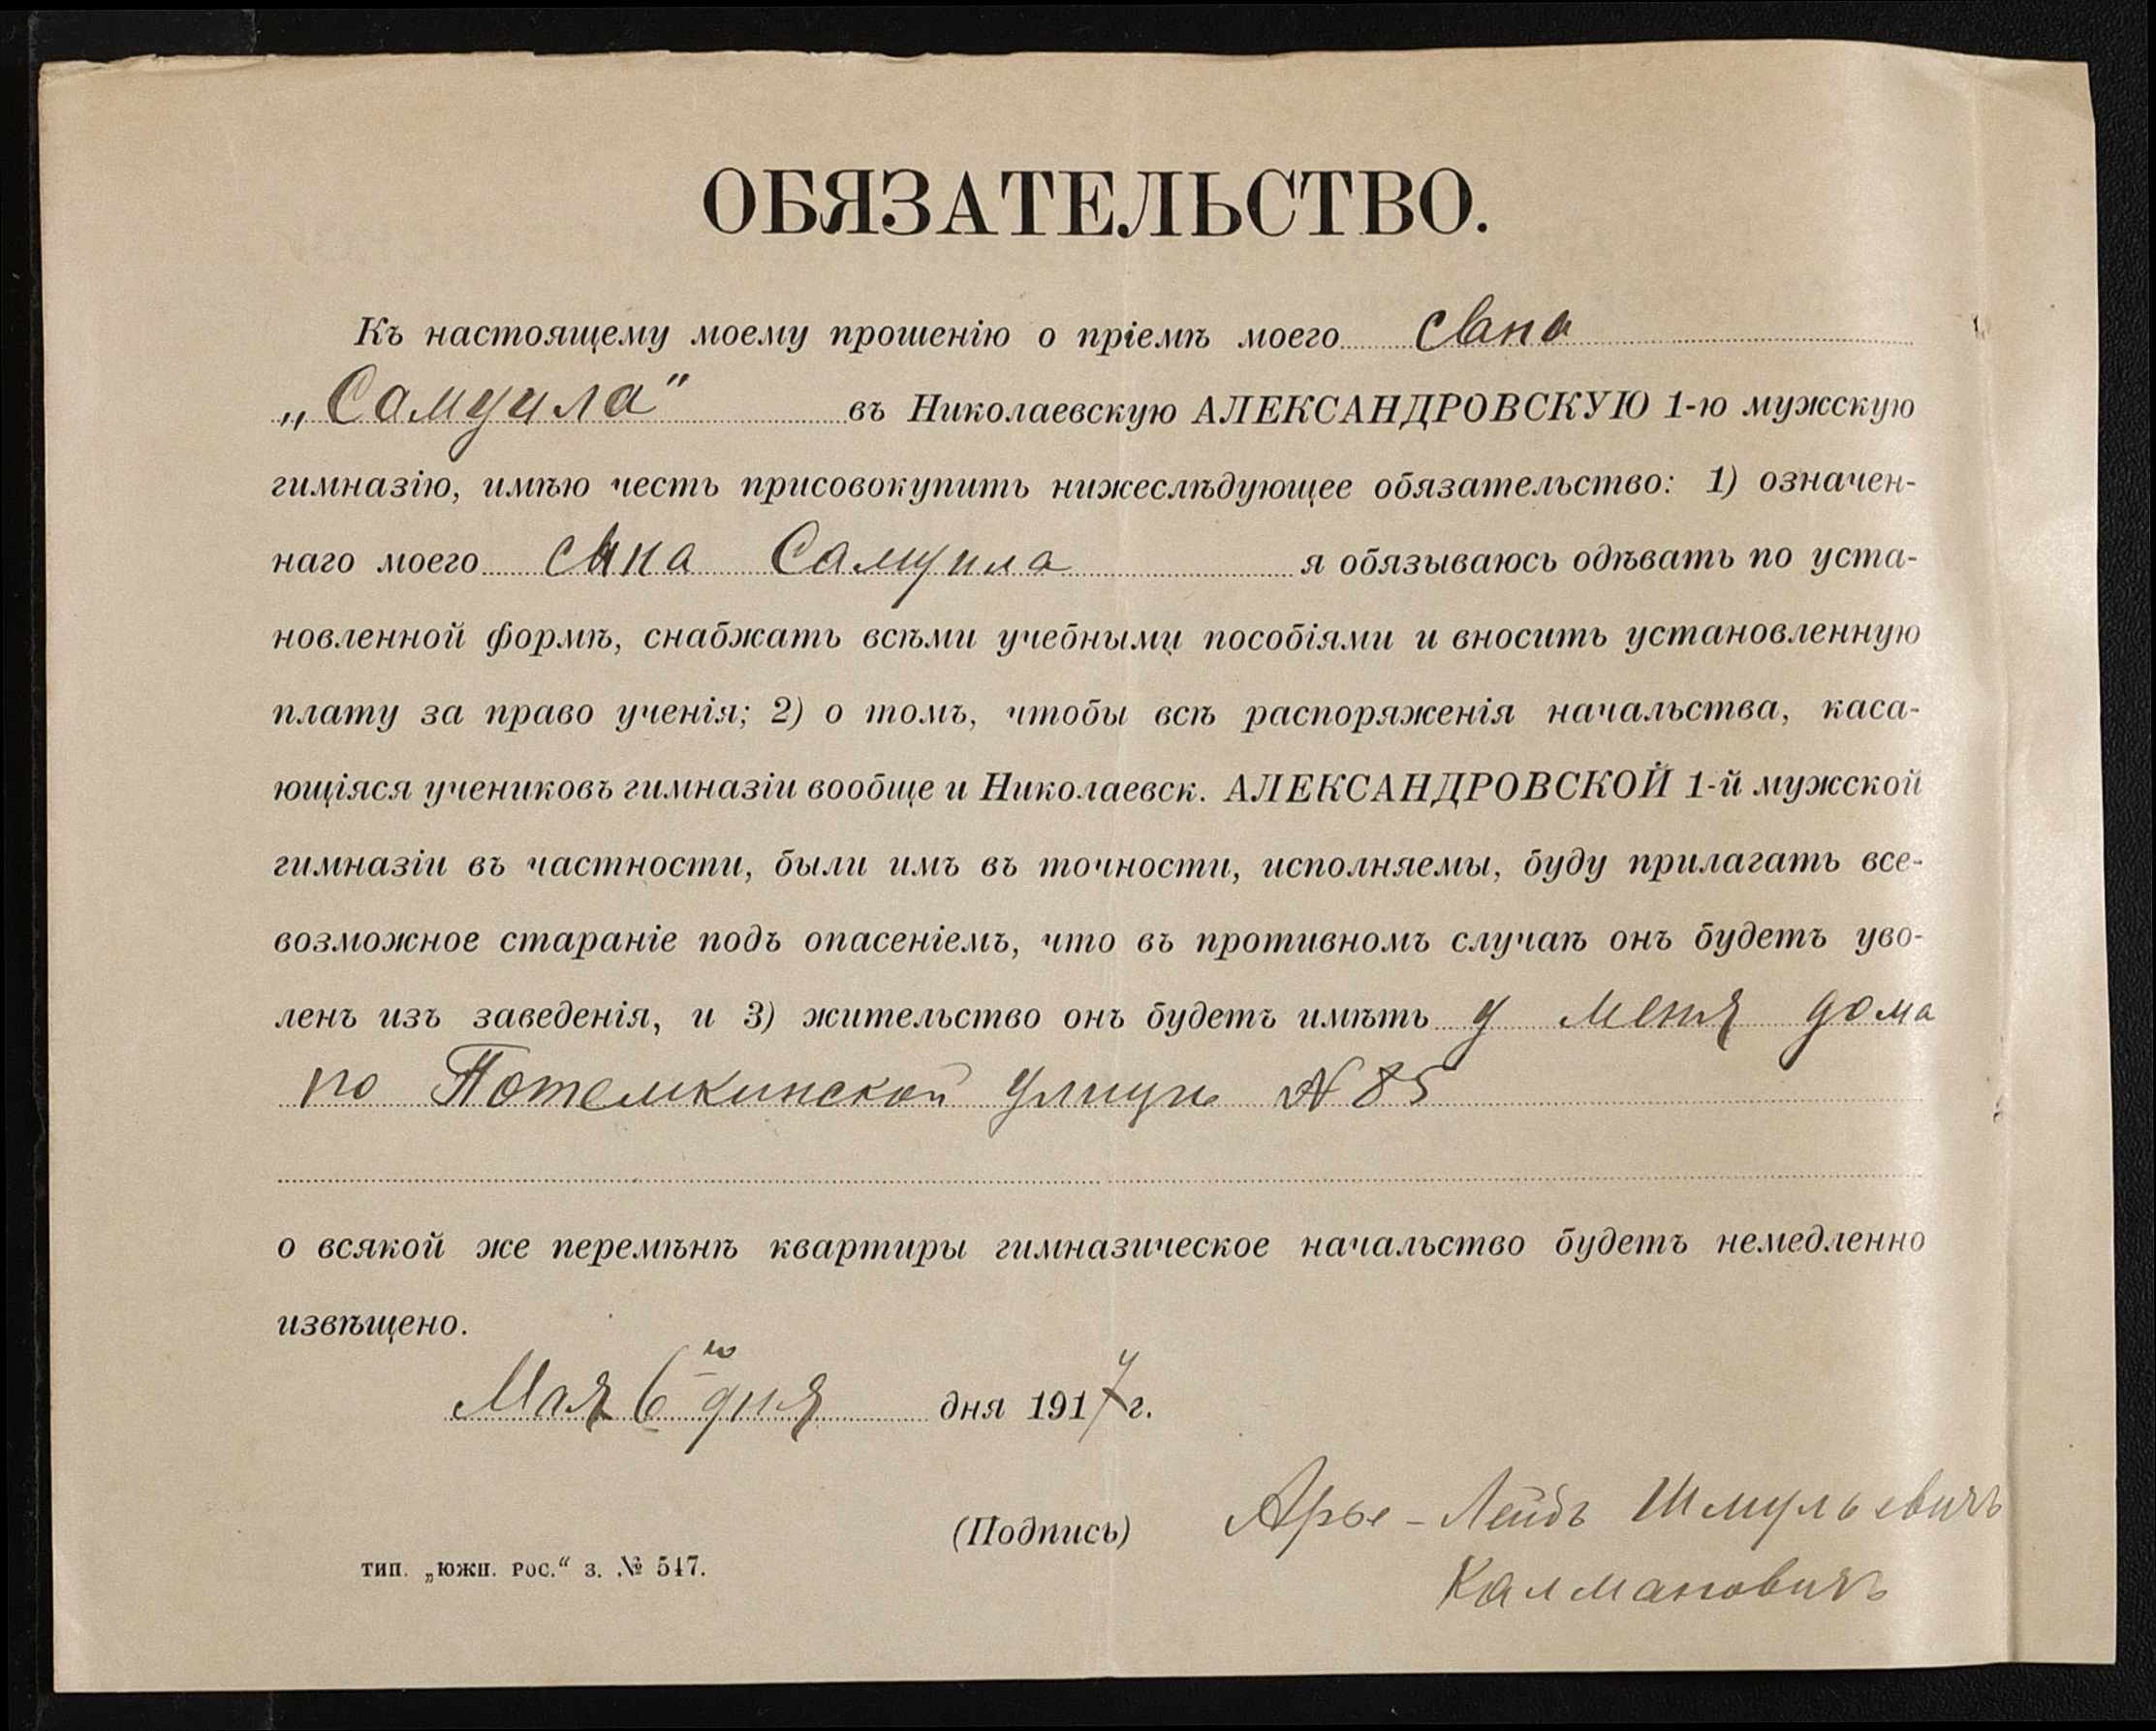 ОБЯЗАТЕЛЬСТВО.
Къ настоящему моему прошенію о пріемѣ моего сына
„Самуила" въ Николаевскую АЛЕКСАНДРОВСКУЮ 1-ю мужскую
гимназію, имѣю честь присовокупить нижеслѣдующее обязательство: 1) означен-
наго моего сына Самуила я обязываюсь одѣвать по уста-
новленной формѣ, снабжать всѣми учебными пособіями и вносить установленную
плату за право ученія; 2) о томъ, чтобы всѣ распоряженія начальства, каса-
ющіяся учениковъ гимназіи вообще и Николаевск. АЛЕКСАНДРОВСКОЙ 1-й мужской
гимназіи въ частности, были имъ въ точности, исполняемы, буду прилагать все-
возможное стараніе подъ опасеніемъ, что въ противномъ случаѣ онъ будетъ уво-
ленъ изъ заведенія, и 3) жительство онъ будетъ имѣть у меня дома
по Потемкинской улицѣ № 85
о всякой же перемѣнѣ квартиры гимназическое начальство будетъ немедленно
извѣщено.
Мая 6го дня дня 1917 г.
(Подпись) Арье-Лейбъ Шмульевичъ
Калмановичъ
тип. „южн. рос.“ з. № 547.